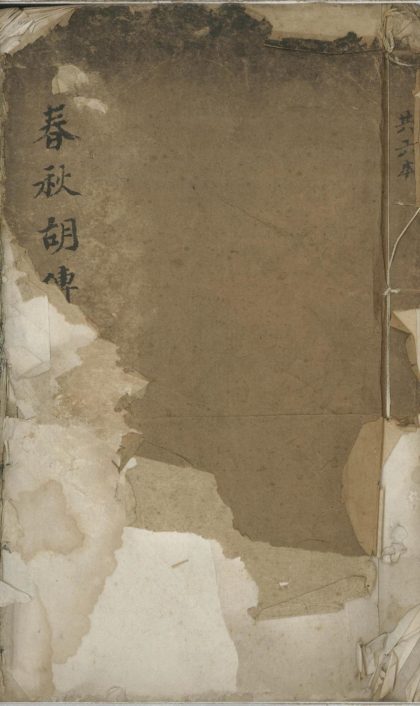 共三本
春秋胡傳